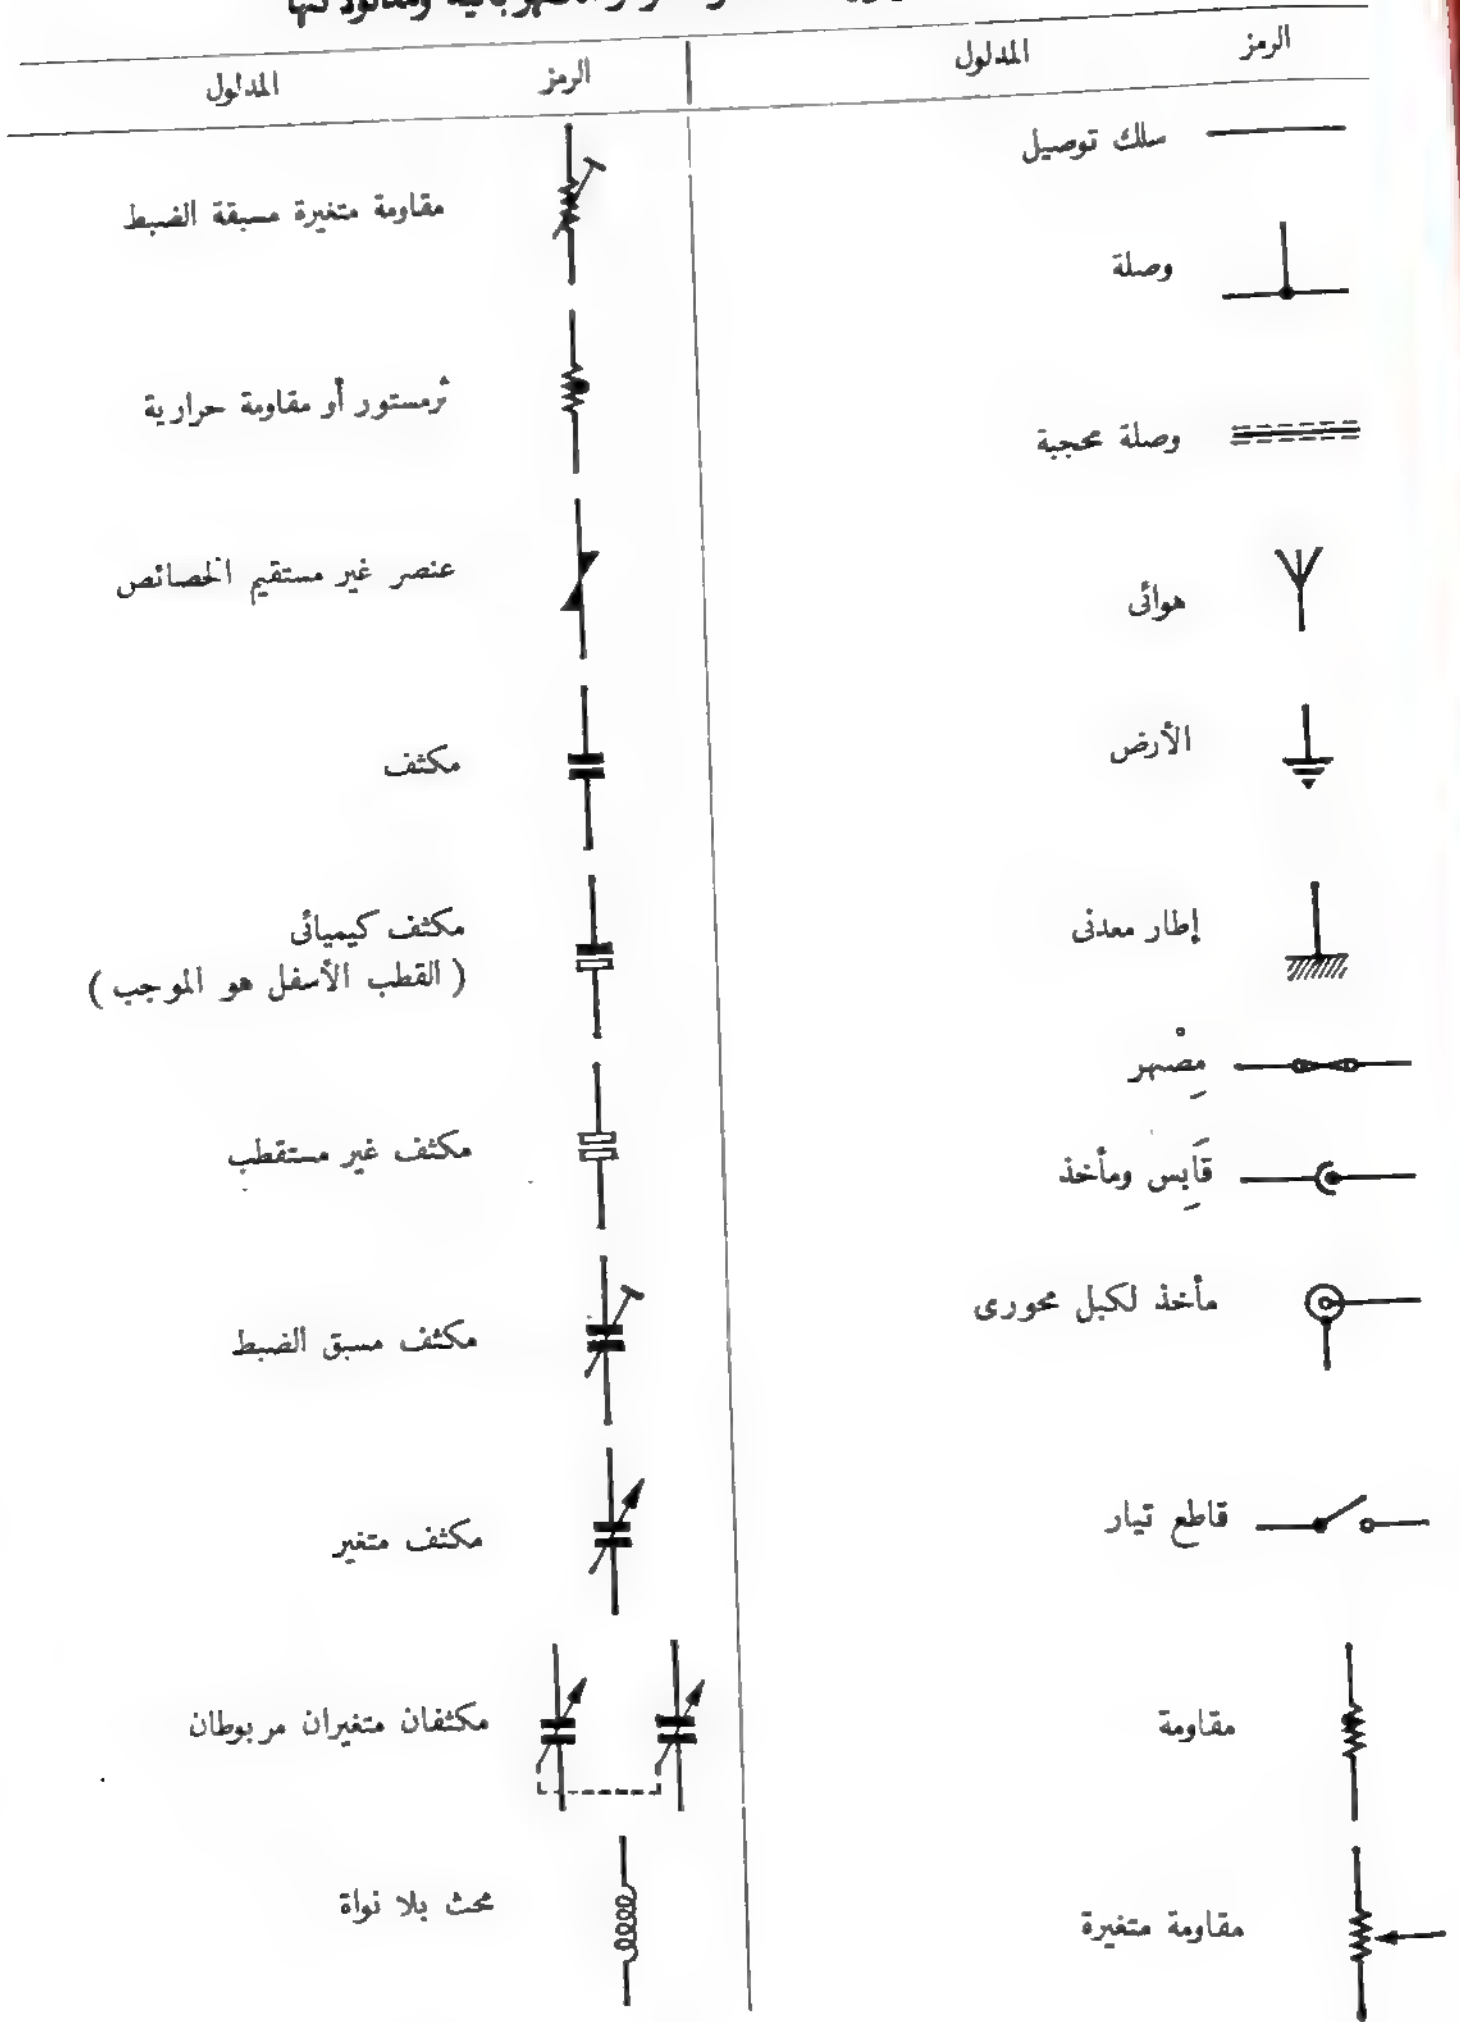 ومدلولاتها
الرمز
المدلول
سلك توصيل
وصلة
وصلة محجبة
هوائى
الأرض
إطار معدنى
مِصْهر
قَابِس ومأخذ
مأخذ لكبل محورى
قاطع تيار
مقاومة
مقاومة متغيرة
الرمز
المدلول
مقاومة متغيرة مسبقة الضبط
ثرمستور أو مقاومة حرارية
عنصر غير مستقيم الخصائص
مكثف
مكثف كيميائى
( القطب الأسفل هو الموجب )
مكثف غير مستقطب
مكثف مسبق الضبط
مكثف متغير
مكثفان متغيران مربوطان
محث بلا نواة